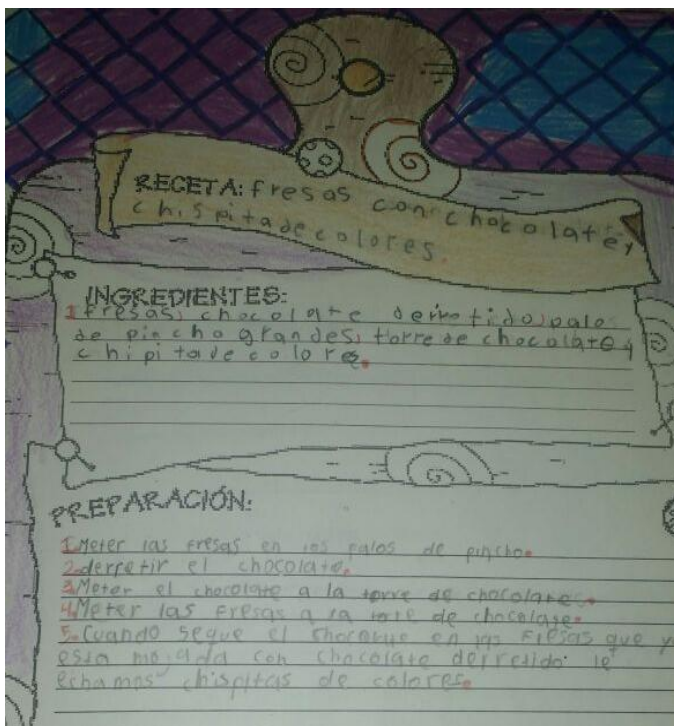 RECETA: fresas con chocolate y
chispitadecolores.
INGREDIENTES:
1 fresas, chocolate derretido, palo
de pincho grandes, torre de chocolate y
chipita de colores.
PREPARACIÓN:
1. Meter las fresas en los palos de pincho.
2. derretir el chocolate.
3. Meter el chocolate a la torre de chocolate.
4. Meter las fresas a la torre de chocolate.
5. Cuando seque el chocolate en las fresas que y
esta mojada con chocolate derretido le
echamos chispitas de colores.